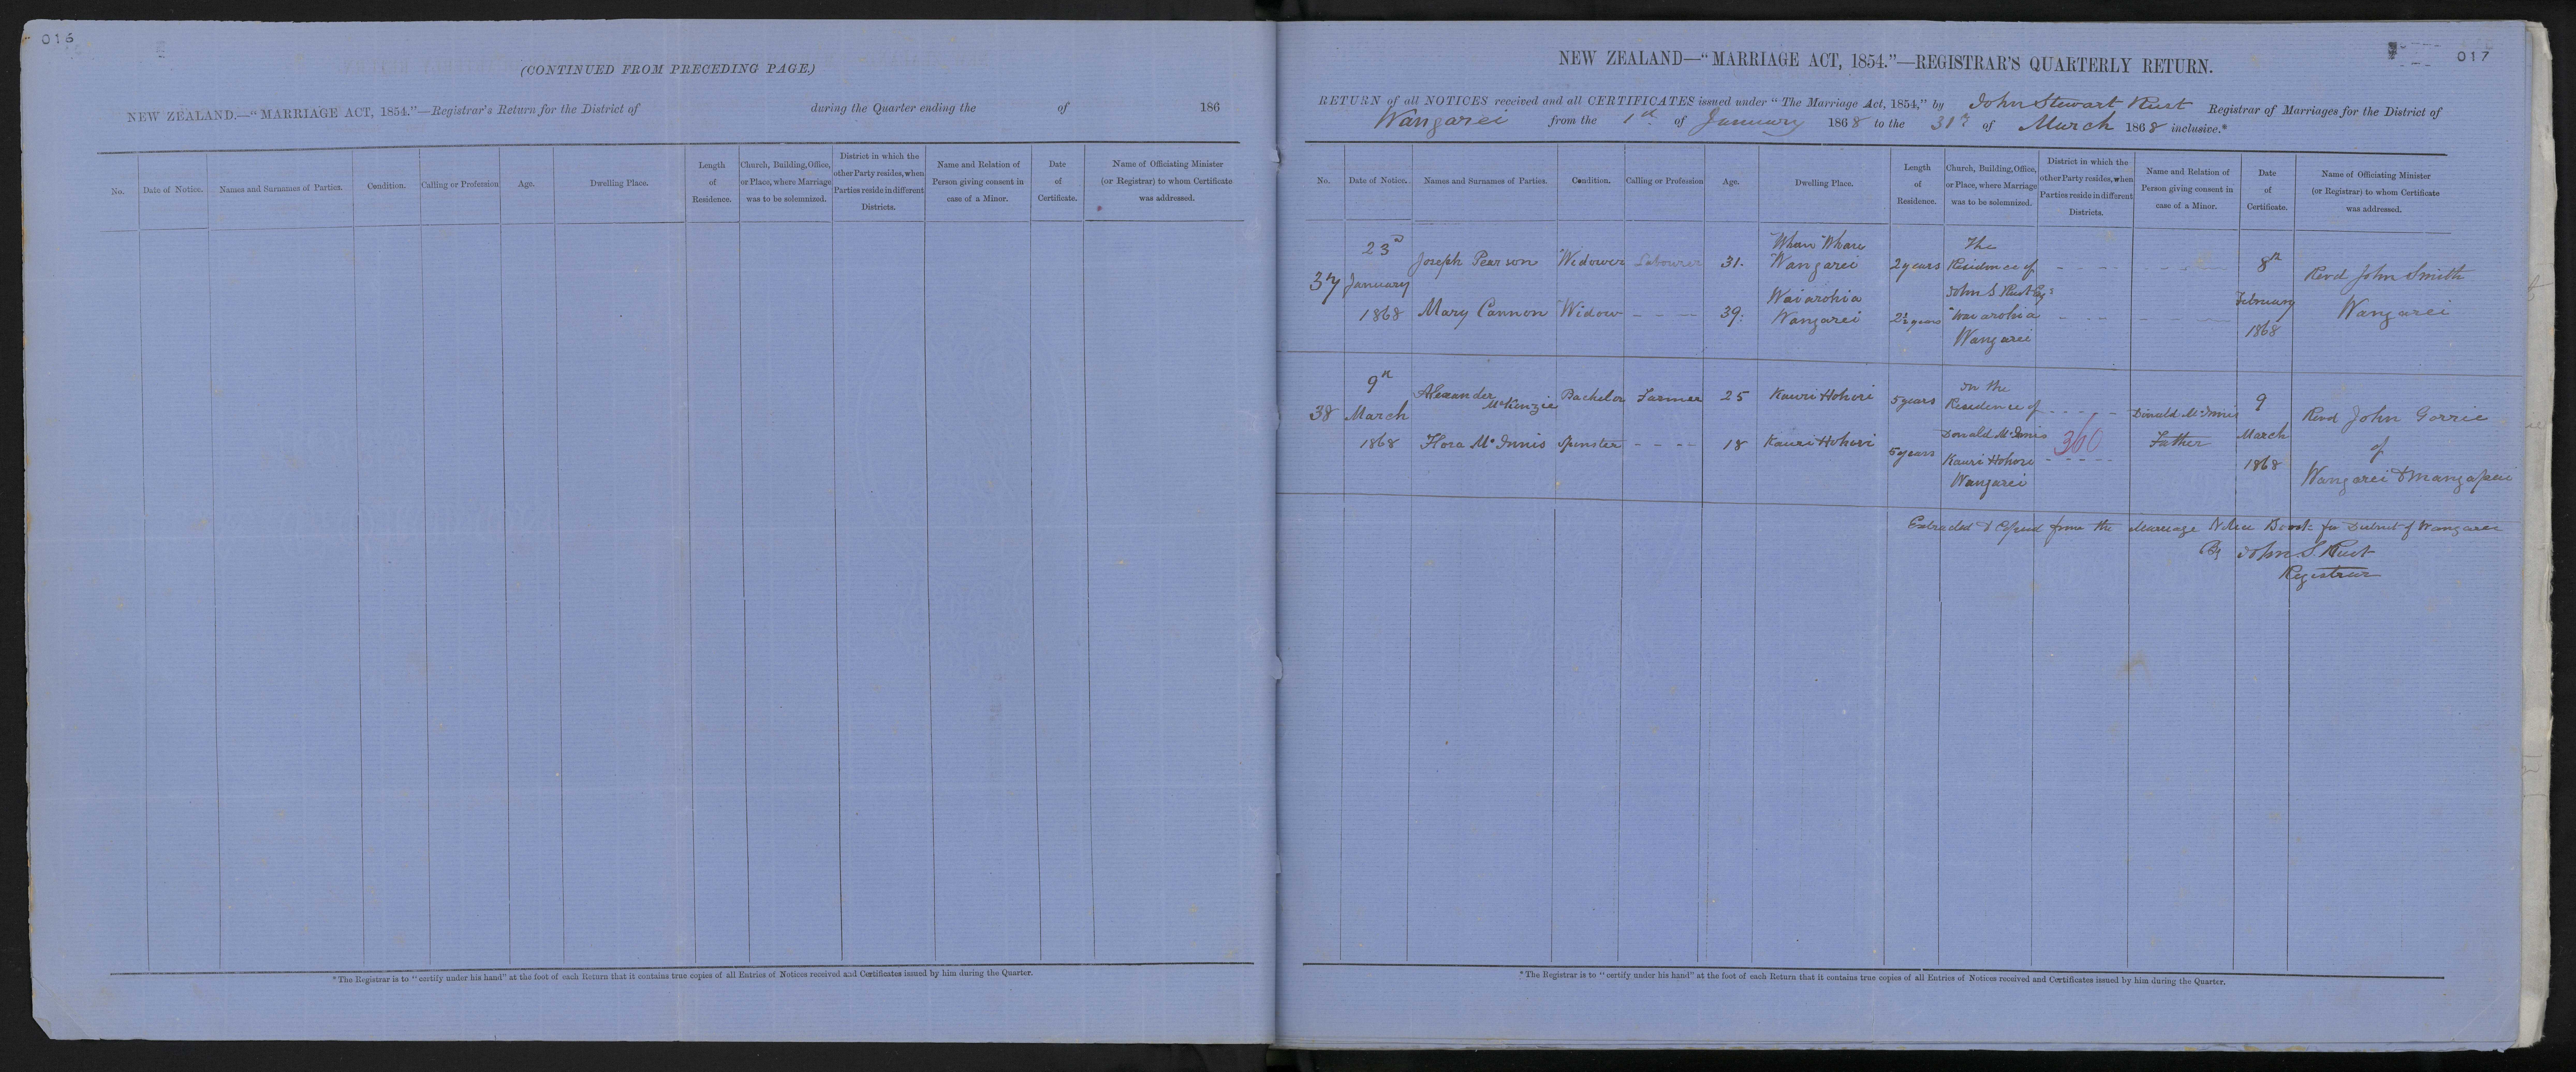 016
(CONTINUED FROM PRECEDING PAGE.)
NEW ZEALAND.—"MARRIAGE ACT, 1854."—Registrar's Return for the District of during the Quarter ending the of 186
No. Date of Notice. Names and Surnames of Parties. Condition. Calling or Profession Age. Dwelling Place. Length of Residence. Church, Building, Office, or Place, where Marriage was to be solemnized. District in which the other Party resides, when Parties reside in different Districts. Name and Relation of Person giving consent in case of a Minor. Date of Certificate. Name of Officiating Minister (or Registrar) to whom Certificate was addressed.
* The Registrar is to "certify under his hand" at the foot of each Return that it contains true copies of all Entries of Notices received and Certificates issued by him during the Quarter.
017
NEW ZEALAND—"MARRIAGE ACT, 1854."—REGISTRAR'S QUARTERLY RETURN.
RETURN of all NOTICES received and all CERTIFICATES issued under "The Marriage Act, 1854," by John Stewart Rust Registrar of Marriages for the District of
Wangarei from the 1st of January 1868 to the 31st of March 1868 inclusive.*
No. Date of Notice. Names and Surnames of Parties. Condition. Calling or Profession Age. Dwelling Place. Length of Residence. Church, Building, Office, or Place, where Marriage was to be solemnized. District in which the other Party resides, when Parties reside in different Districts. Name and Relation of Person giving consent in case of a Minor. Date of Certificate. Name of Officiating Minister (or Registrar) to whom Certificate was addressed.
37
23d
January
1868
Joseph Pearson Widower Labourer 31.
Whau Whau
Wangarei
2 years
Mary Cannon Widow - - - 39.
Waiarohia
Wangarei
2½ years
The
Residence of
John S Rust Esq
Waiarohia
Wangarei
8th
February
1868
Revd John Smith
Wangarei
38
9th
March
1868
Alexander
McKenzie
Bachelor Farmer 25 Kauri Hohori 5 years
Flora McInnis Spinster - - - - 18 Kauri Hohori 5 years
In the
Residence of
Donald McInnis
Kauri Hohori
Wangarei
360
Donald McInnis
Father
9
March
1868
Revd John Gorrie
of
Wangarei & Mangapai
Extracted & Copied from the Marriage Notice Book for District of Wangarei
By John S. Rust
Registrar
* The Registrar is to "certify under his hand" at the foot of each Return that it contains true copies of all Entries of Notices received and Certificates issued by him during the Quarter.